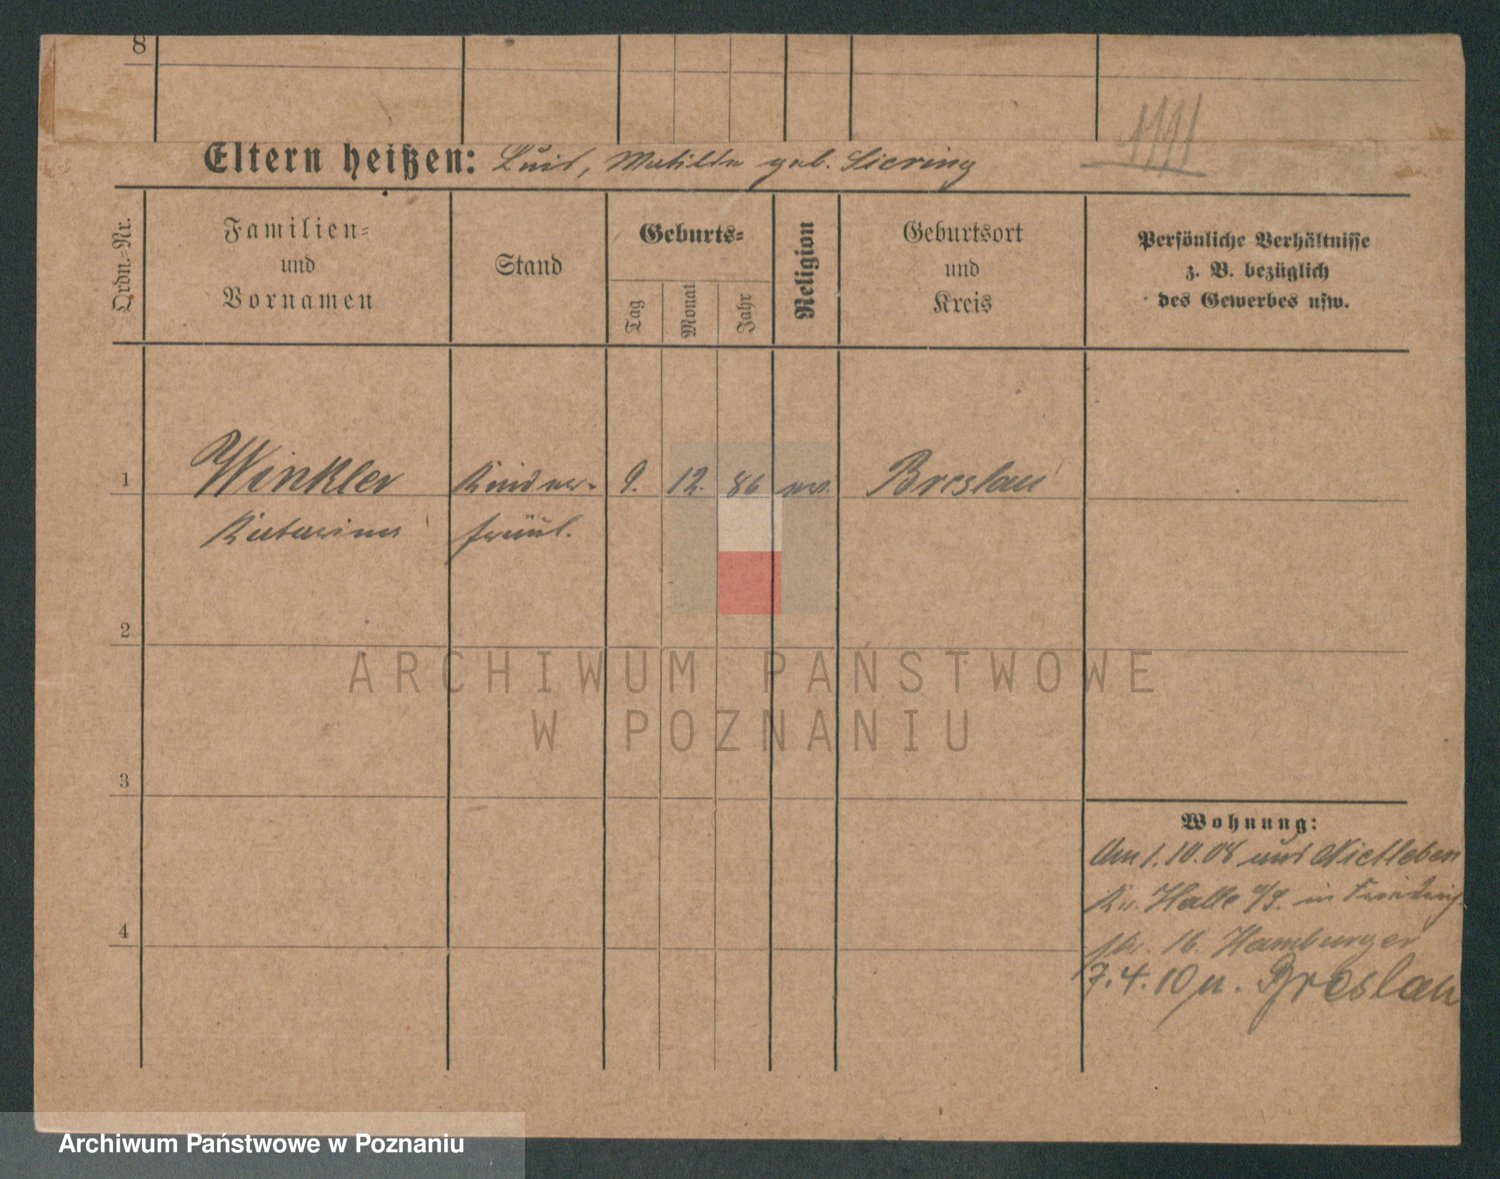 8
Eltern heißen: Luis, Matilde geb. Siering
1111
Ordn.-Nr.
Familien-
und
Vornamen
Stand
Geburts-
Tag
Monat
Jahr
Religion
Geburtsort
und
Kreis
Persönliche Verhältnisse
z. B. bezüglich
des Gewerbes usw.
1
Winkler Kinder- 9. 12. 86 ev. Breslau
Katarina fräul.
2
3
4
Wohnung:
Am 1.10.08 aus Nietleben
Kr. Halle a/S. in Friedrich
str. 16. Hamburger
7.4.10 n. Breslau
ARCHIWUM PAŃSTWOWE
W POZNANIU
Archiwum Państwowe w Poznaniu